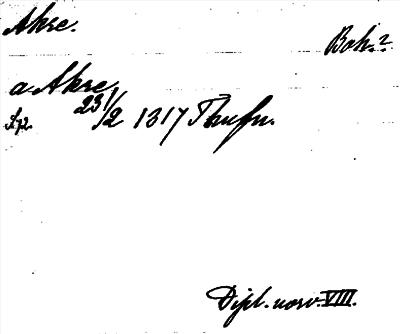 Akre.
Boh.?
a Akre,
23/2 1317 Thufn.
Dipl. norv. VIII.